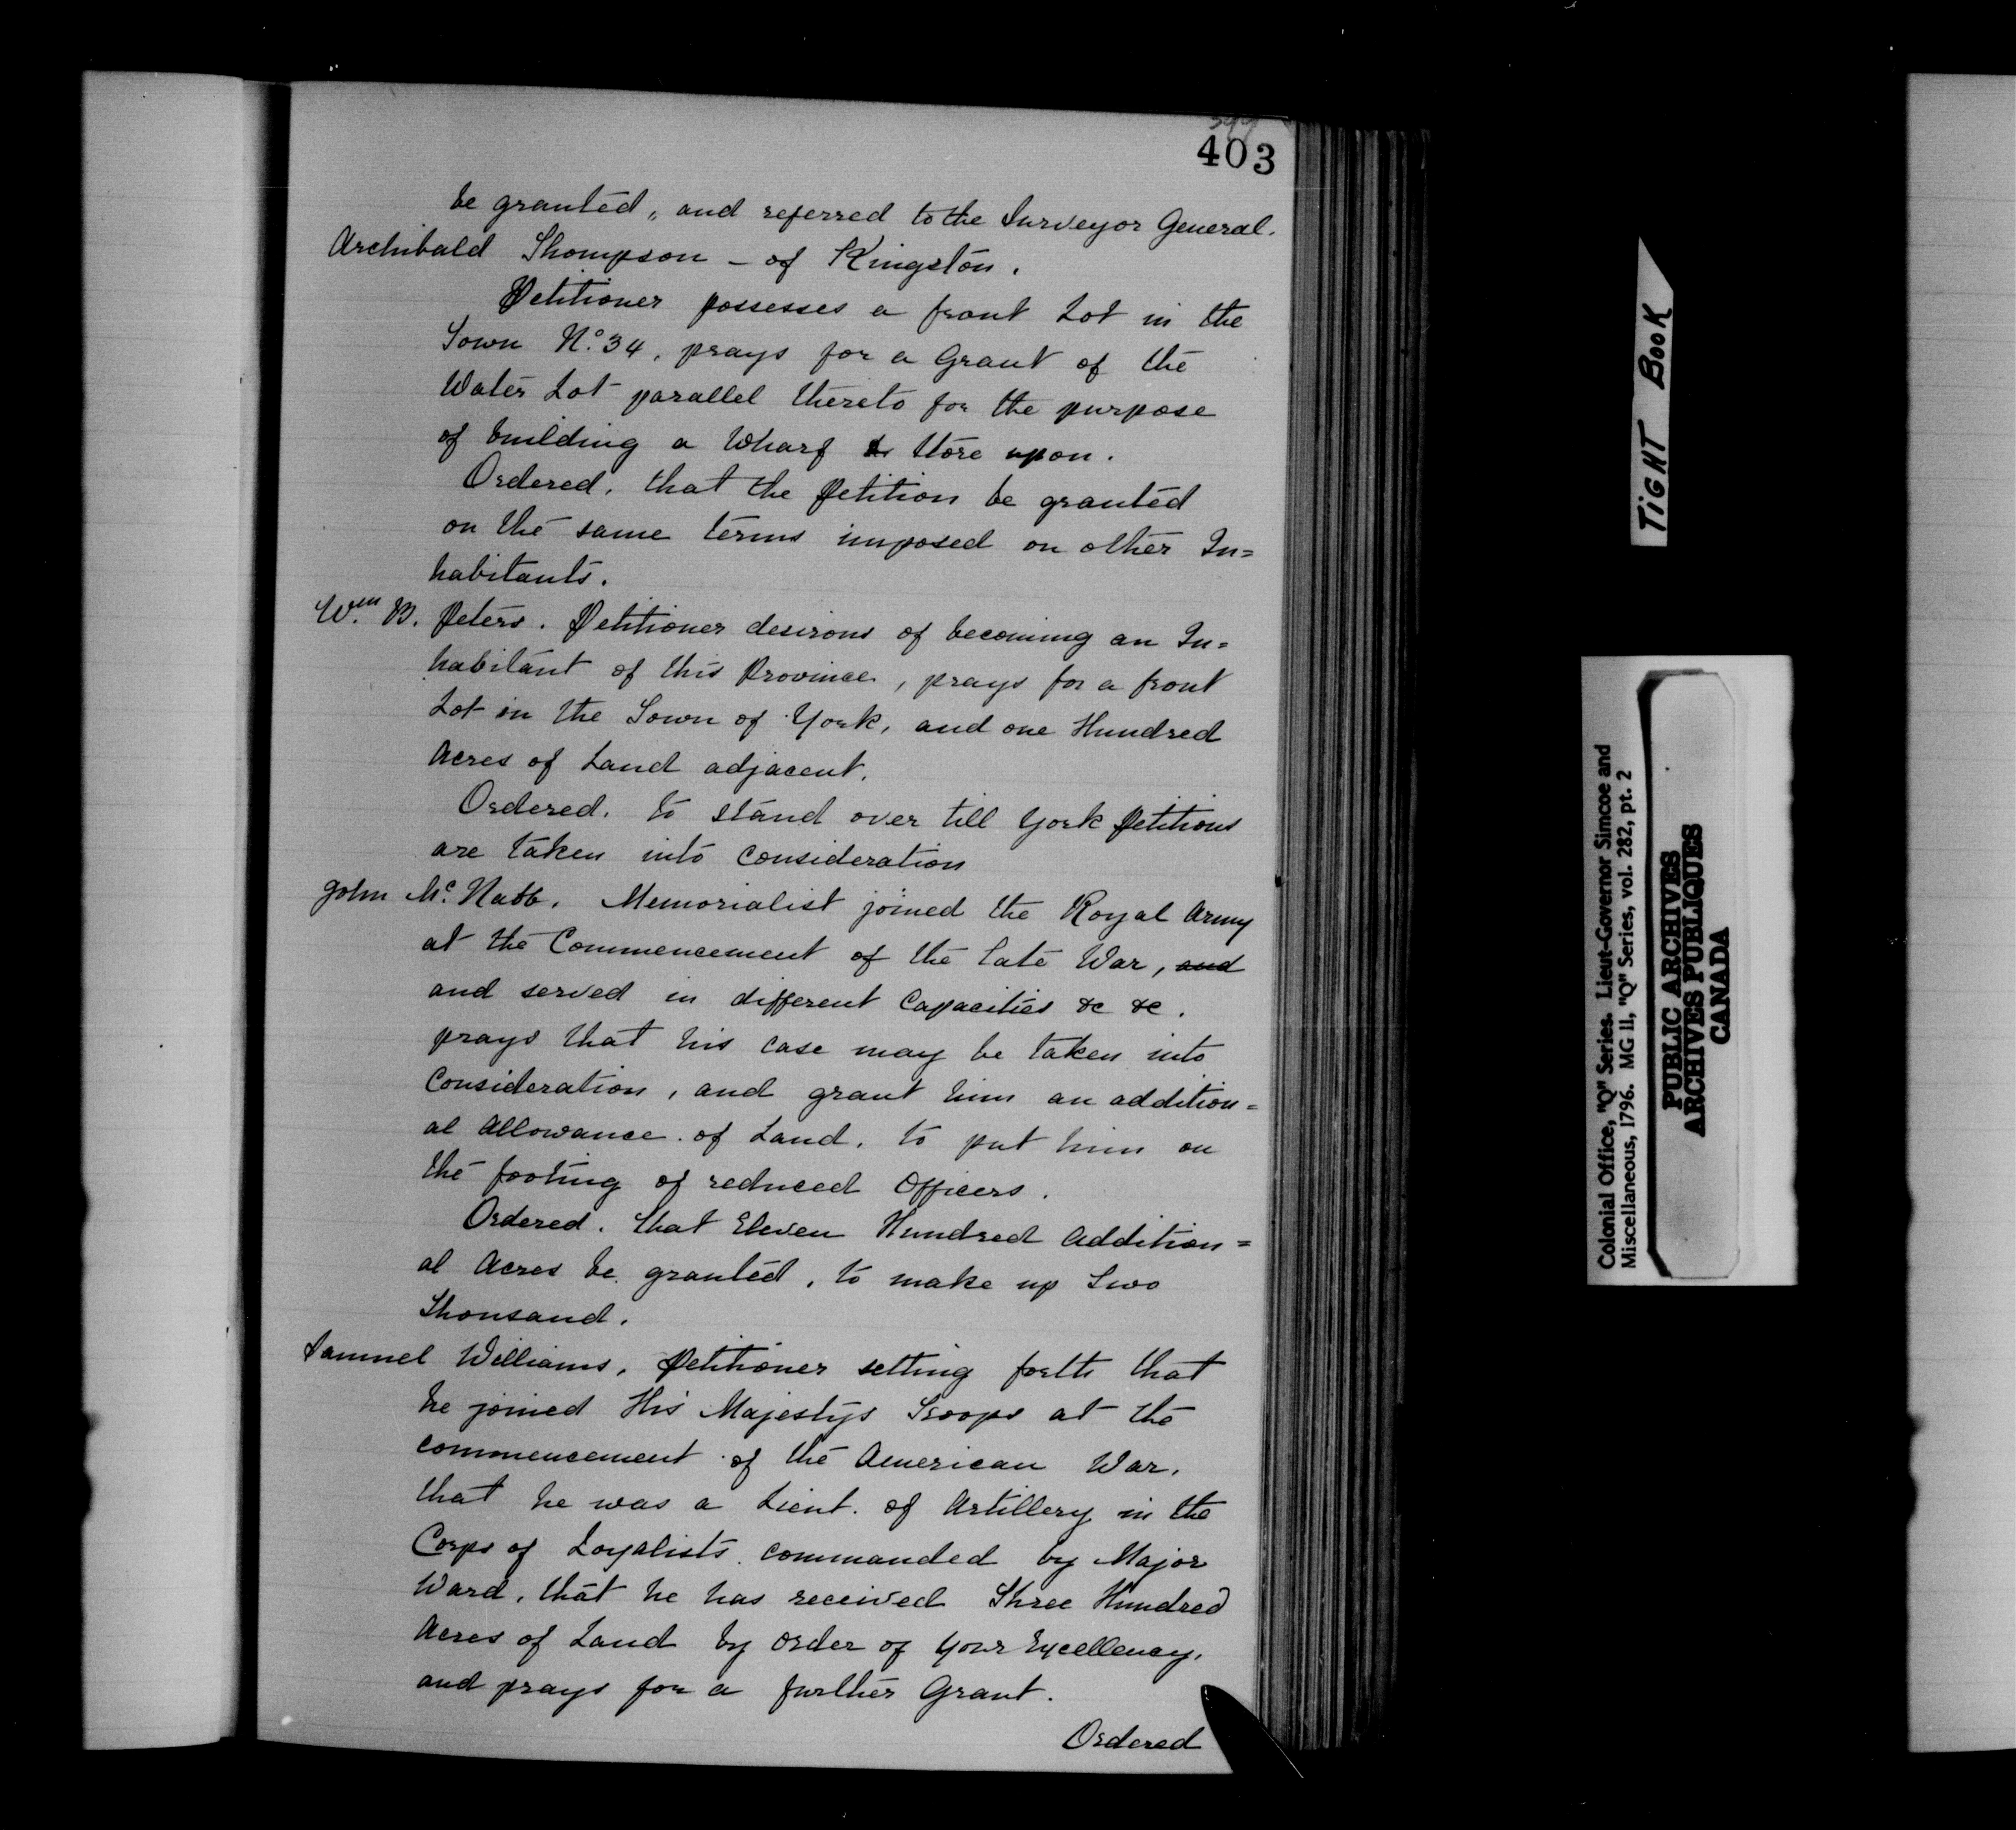 403
be granted, and referred to the Surveyor General.
Archibald Thompson - of Kingston.
Petitioner possesses a front Lot in the
Town No. 34, prays for a Grant of the
Water Lot parallel thereto for the purpose
of building a Wharf & Store upon.
Ordered, that the Petition be granted
on the same terms imposed on other In=
habitants.
Wm. B. Peters. Petitioner desirous of becoming an In=
habitant of this Province, prays for a front
Lot in the Town of York, and one Hundred
Acres of Land adjacent.
Ordered, to stand over till York Petitions
are taken into Consideration
John Mc. Nabb. Memorialist joined the Royal Army
at the Commencement of the late War, and
and served in different Capacities &c &c.
prays that his case may be taken into
Consideration, and grant him an addition=
al Allowance of Land, to put him on
the footing of reduced Officers.
Ordered, that Eleven Hundred Addition=
al Acres be granted, to make up Two
Thousand.
Samuel Williams, Petitioner setting forth that
he joined His Majestys Troops at the
commencement of the American War,
that he was a Lieut. of Artillery in the
Corps of Loyalists commanded by Major
Ward, that he has received Three Hundred
Acres of Land by Order of Your Excellency,
and prays for a further Grant.
Ordered
TIGHT BOOK
Colonial Office, "Q" Series. Lieut-Governor Simcoe and
Miscellaneous, 1796. MG 11, "Q" Series, vol. 282, pt. 2
PUBLIC ARCHIVES
ARCHIVES PUBLIQUES
CANADA